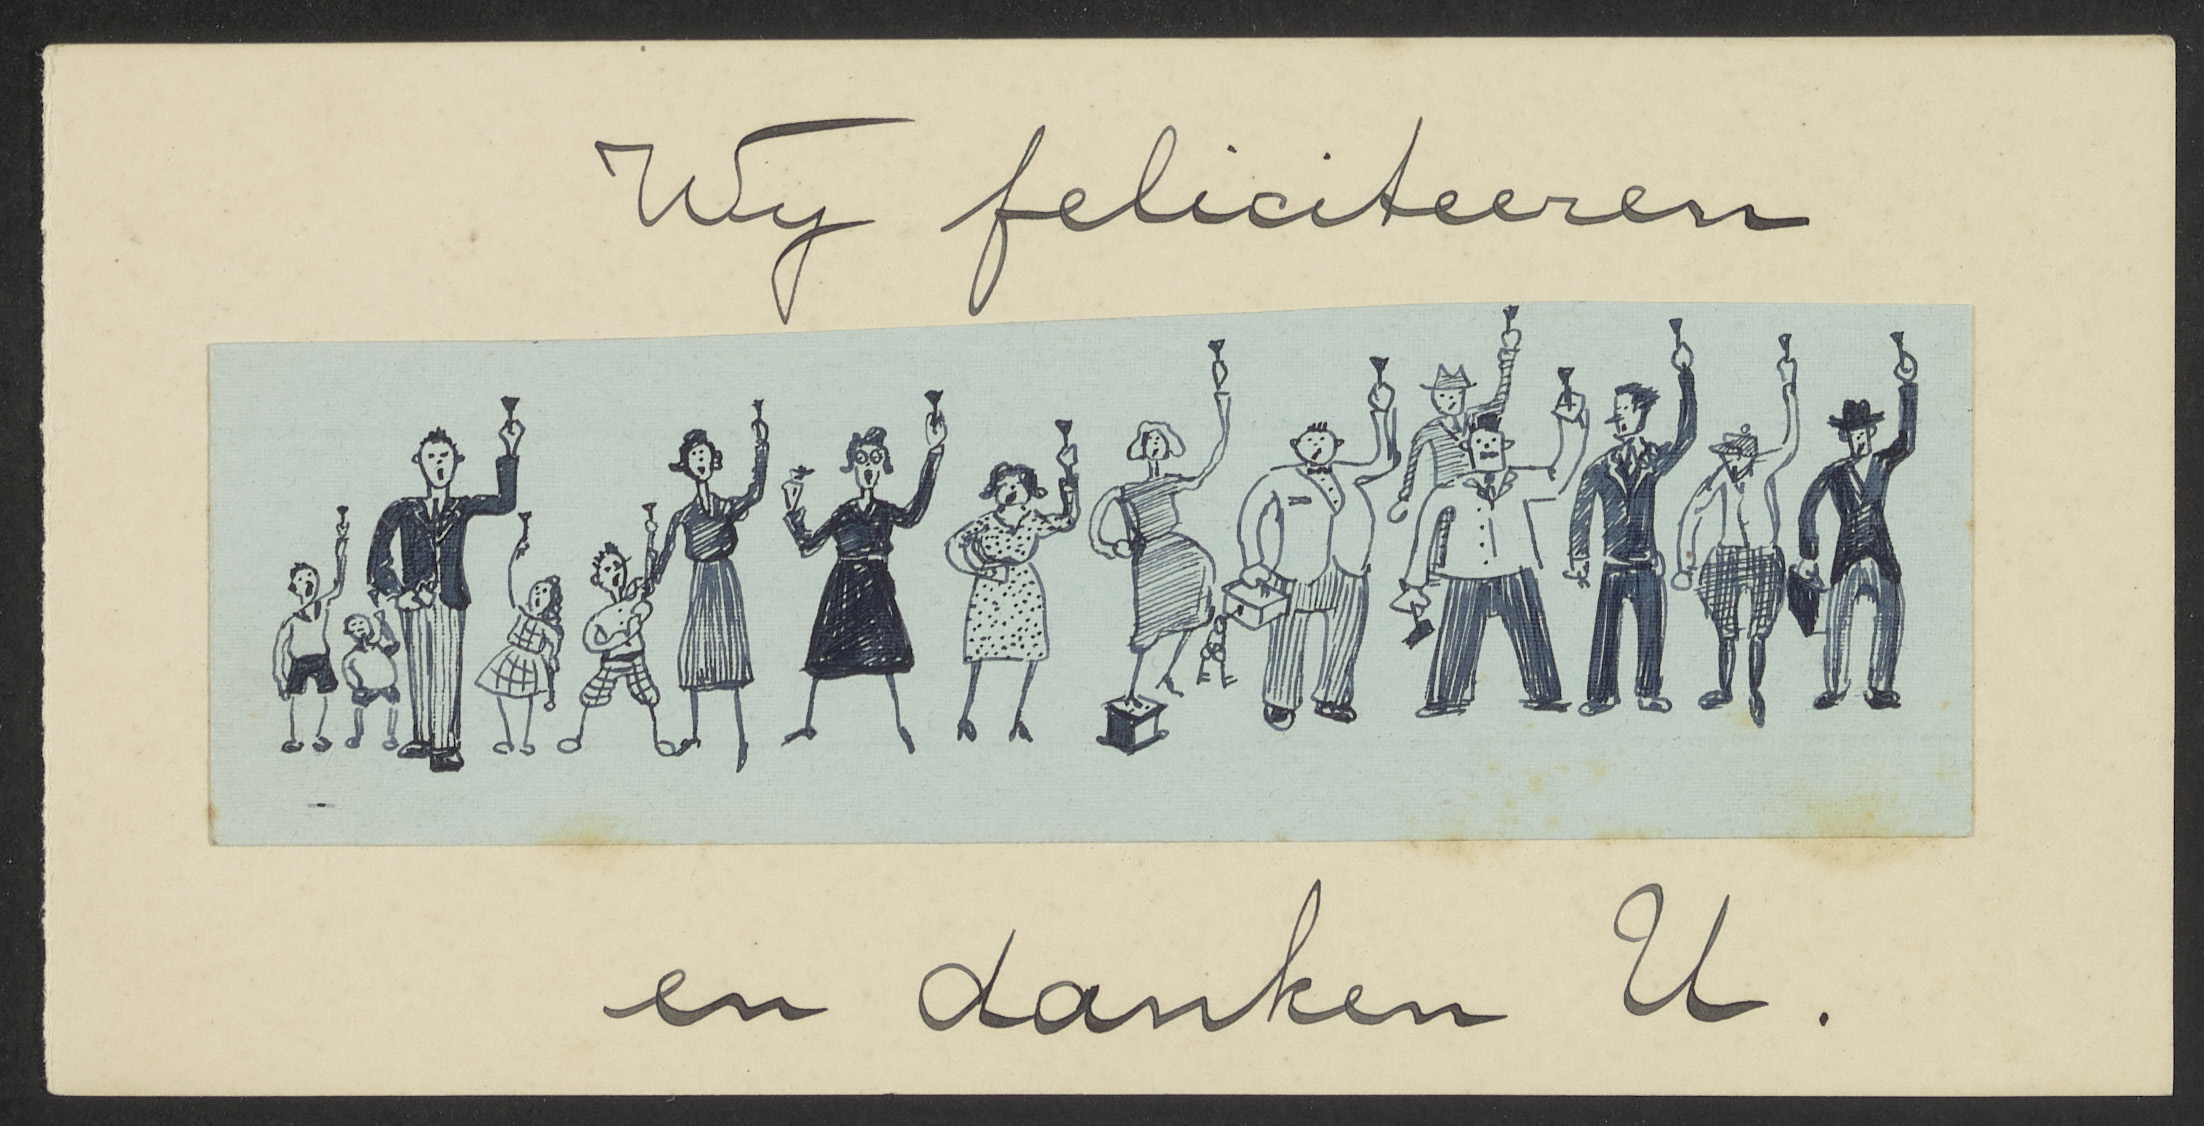 Wy feliciteeren
en danken U.